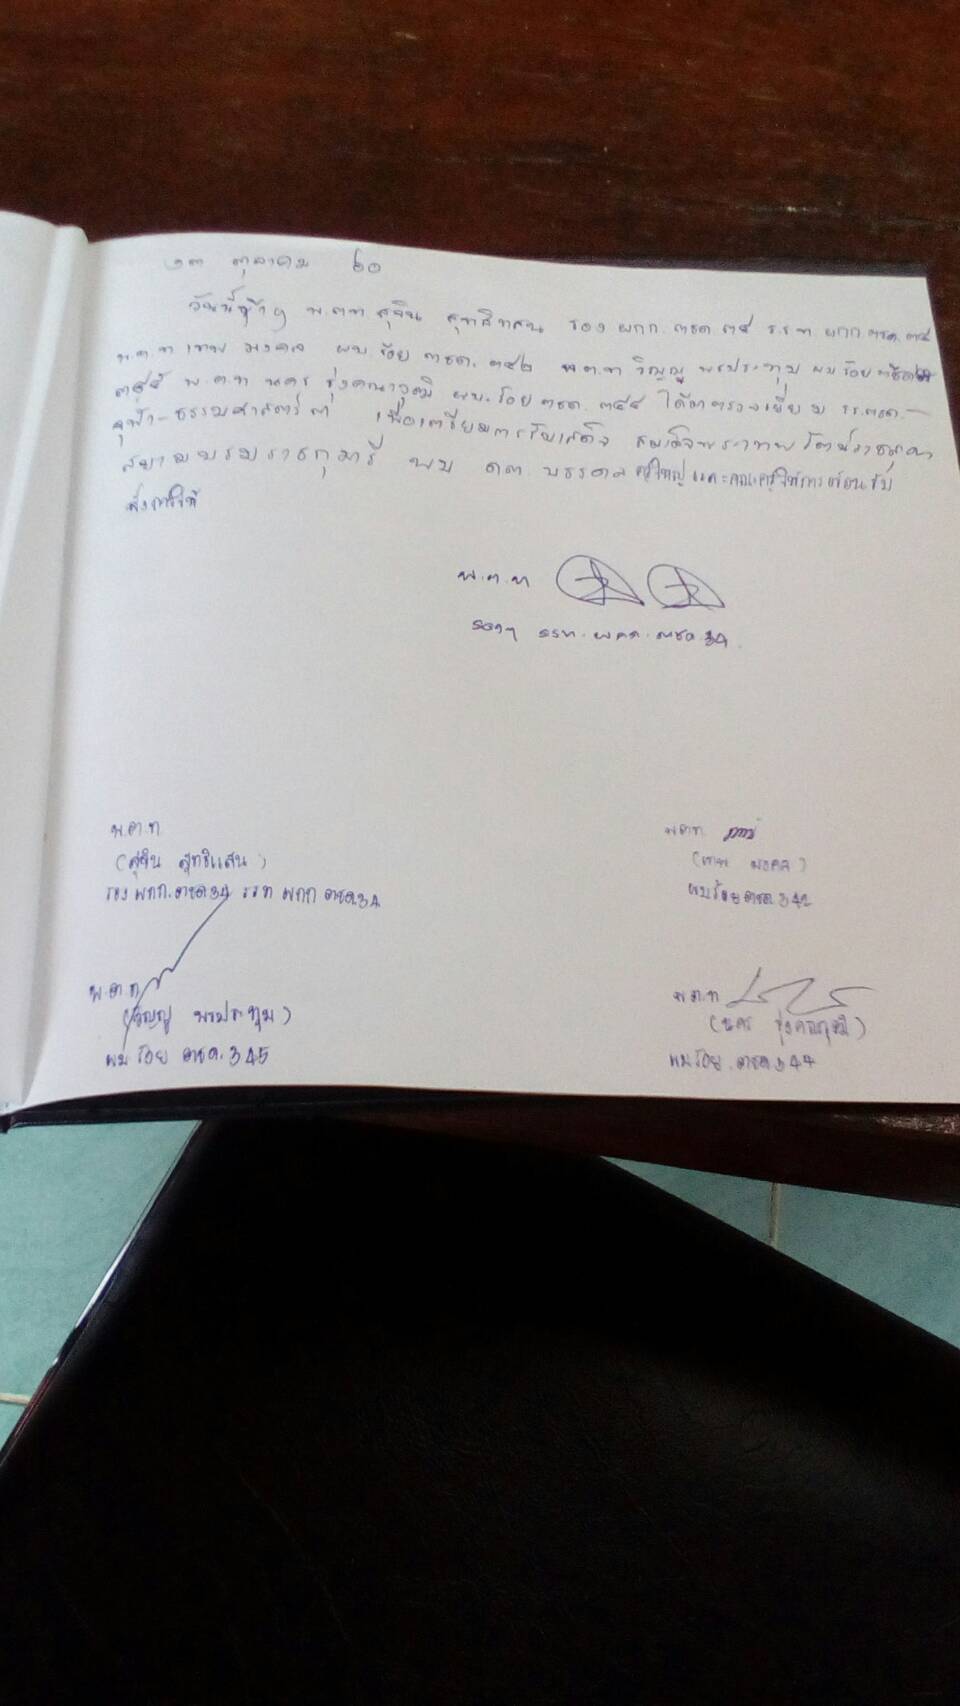 ๑๓ ตุลาคม ๖๐
วันนี้ข้าฯ พ.ต.ท สุจิน สุทธิแสน รอง ผกก. ตชด ๓๔ ร.ร.ท. ผกก. ตชด. ๓๔
พ.ต.ท เทพ มงคล ผบ.ร้อย ตชด. ๓๔๒ พ.ต.ท วิญญู พรประทุม ผบ.ร้อย ตชด
๓๔๕ พ.ต.ท นคร รุ่งคณาวุฒิ ผบ.ร้อย ตชด. ๓๔๔ ได้มาตรวจเยี่ยม รร.ตชด. –
จุฬา-ธรรมศาสตร์ ๓ เพื่อเตรียมการรับเสด็จ สมเด็จพระเทพรัตนราชสุดา
สยามบรมราชกุมารี พบ ดต. บรรดล ครูใหญ่ และคณะครูให้การต้อนรับ
พ.ต.ท
รองฯ รรท. ผกก. ตชด. 34
พ.ต.ท
(สุจิน สุทธิแสน)
รอง ผกก. ตชด 34 รรท ผกก ตชด 34
พ.ต.ท
(เทพ มงคล)
ผบ ร้อย ตชด. 342
พ.ต.ท
(วิญญู พรประทุม)
ผบ ร้อย ตชด. 345
พ.ต.ท
(นคร รุ่งคณาวุฒิ)
ผบ ร้อย. ตชด. 344